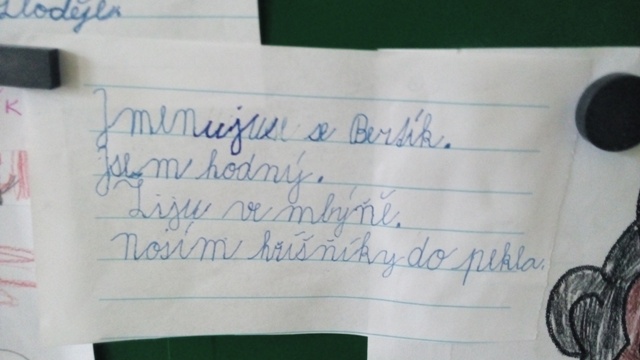 Zloděj
K
Jmenujuse se Bertík.
jsem hodný.
Žiju ve mlýně.
Nosím hříšníky do pekla.